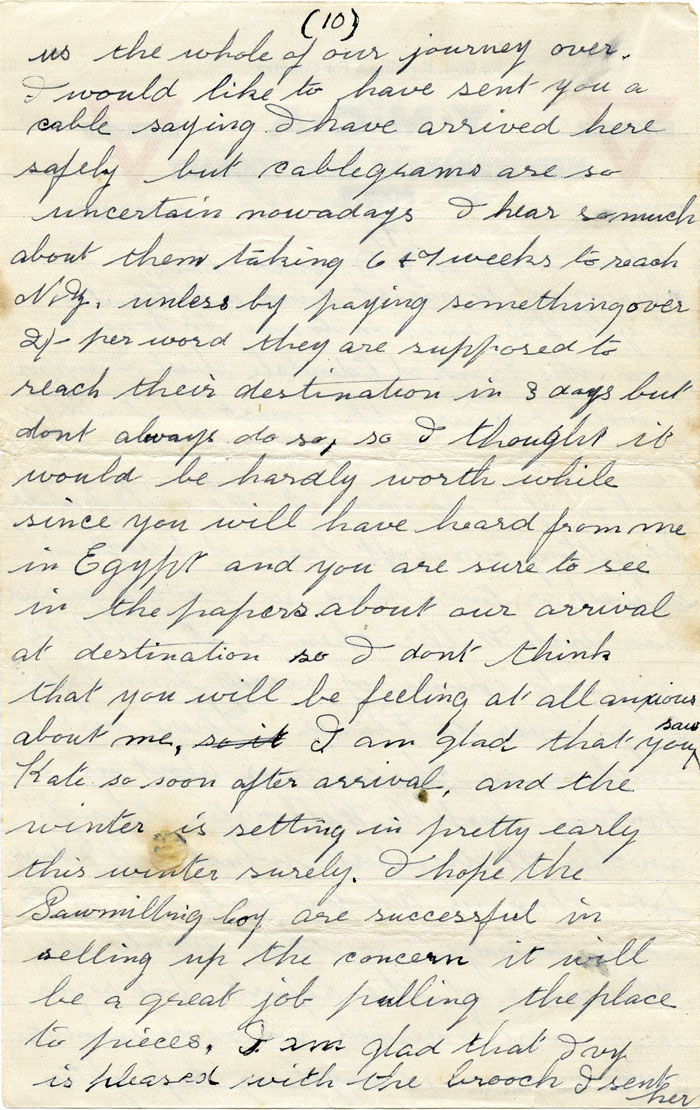 (10)
us the whole of our journey over.
I would like to have sent you a
cable saying I have arrived here
safely but cablegrams are so
uncertain nowadays I hear so much
about them taking 6 & 7 weeks to reach
N.Z. unless by paying something over
2/- per word they are supposed to
reach their destination in 3 days but
dont always do so, so I thought it
would be hardly worth while
since you will have heard from me
in Egypt and you are sure to see
in the papers about our arrival
at destination so I dont think
that you will be feeling at all anxious
about me, so it I am glad that you saw
Kate so soon after arrival, and the
winter is setting in pretty early
this winter surely. I hope the
Sawmilling Coy are successful in
selling up the concern it will
be a great job pulling the place
to pieces. I am glad that Ivy
is pleased with the brooch I sent
her